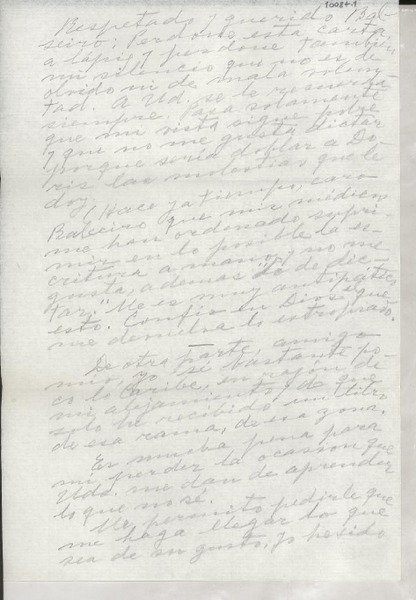 10084-1
Respetado y querido Bal-
seiro: Perdone esta carta
a lápiz y perdone también
mi silencio que no es de
olvido ni de mala volun-
tad. A Ud. se le recuerda
siempre. Pasa solamente
que mi vista sigue pobre
y que no me gusta dictar
porque sería doblar a Do-
ris las molestias que le
doy.
(Hace ya tiempo, caro
Balseiro que mis médicos
me han ordenado supri-
mir en lo posible la es-
critura a mano y no me
gusta, además, de dic-
tar." Me es muy antipático
esto. Confío en Dios que
me devuelva lo estropeado.
De otra parte, amigo
mío, yo sé bastante po-
co lo Caribe, en razón de
mi alejamiento y de que
solo he recibido un libro
de esa rama, de esa zona.
Es mucha pena para
mí perder la ocasión que
Uds. me dan de aprender
lo que no sé.
Me permito pedirle que
me haga llegar lo que
sea de su gusto. Yo he sido